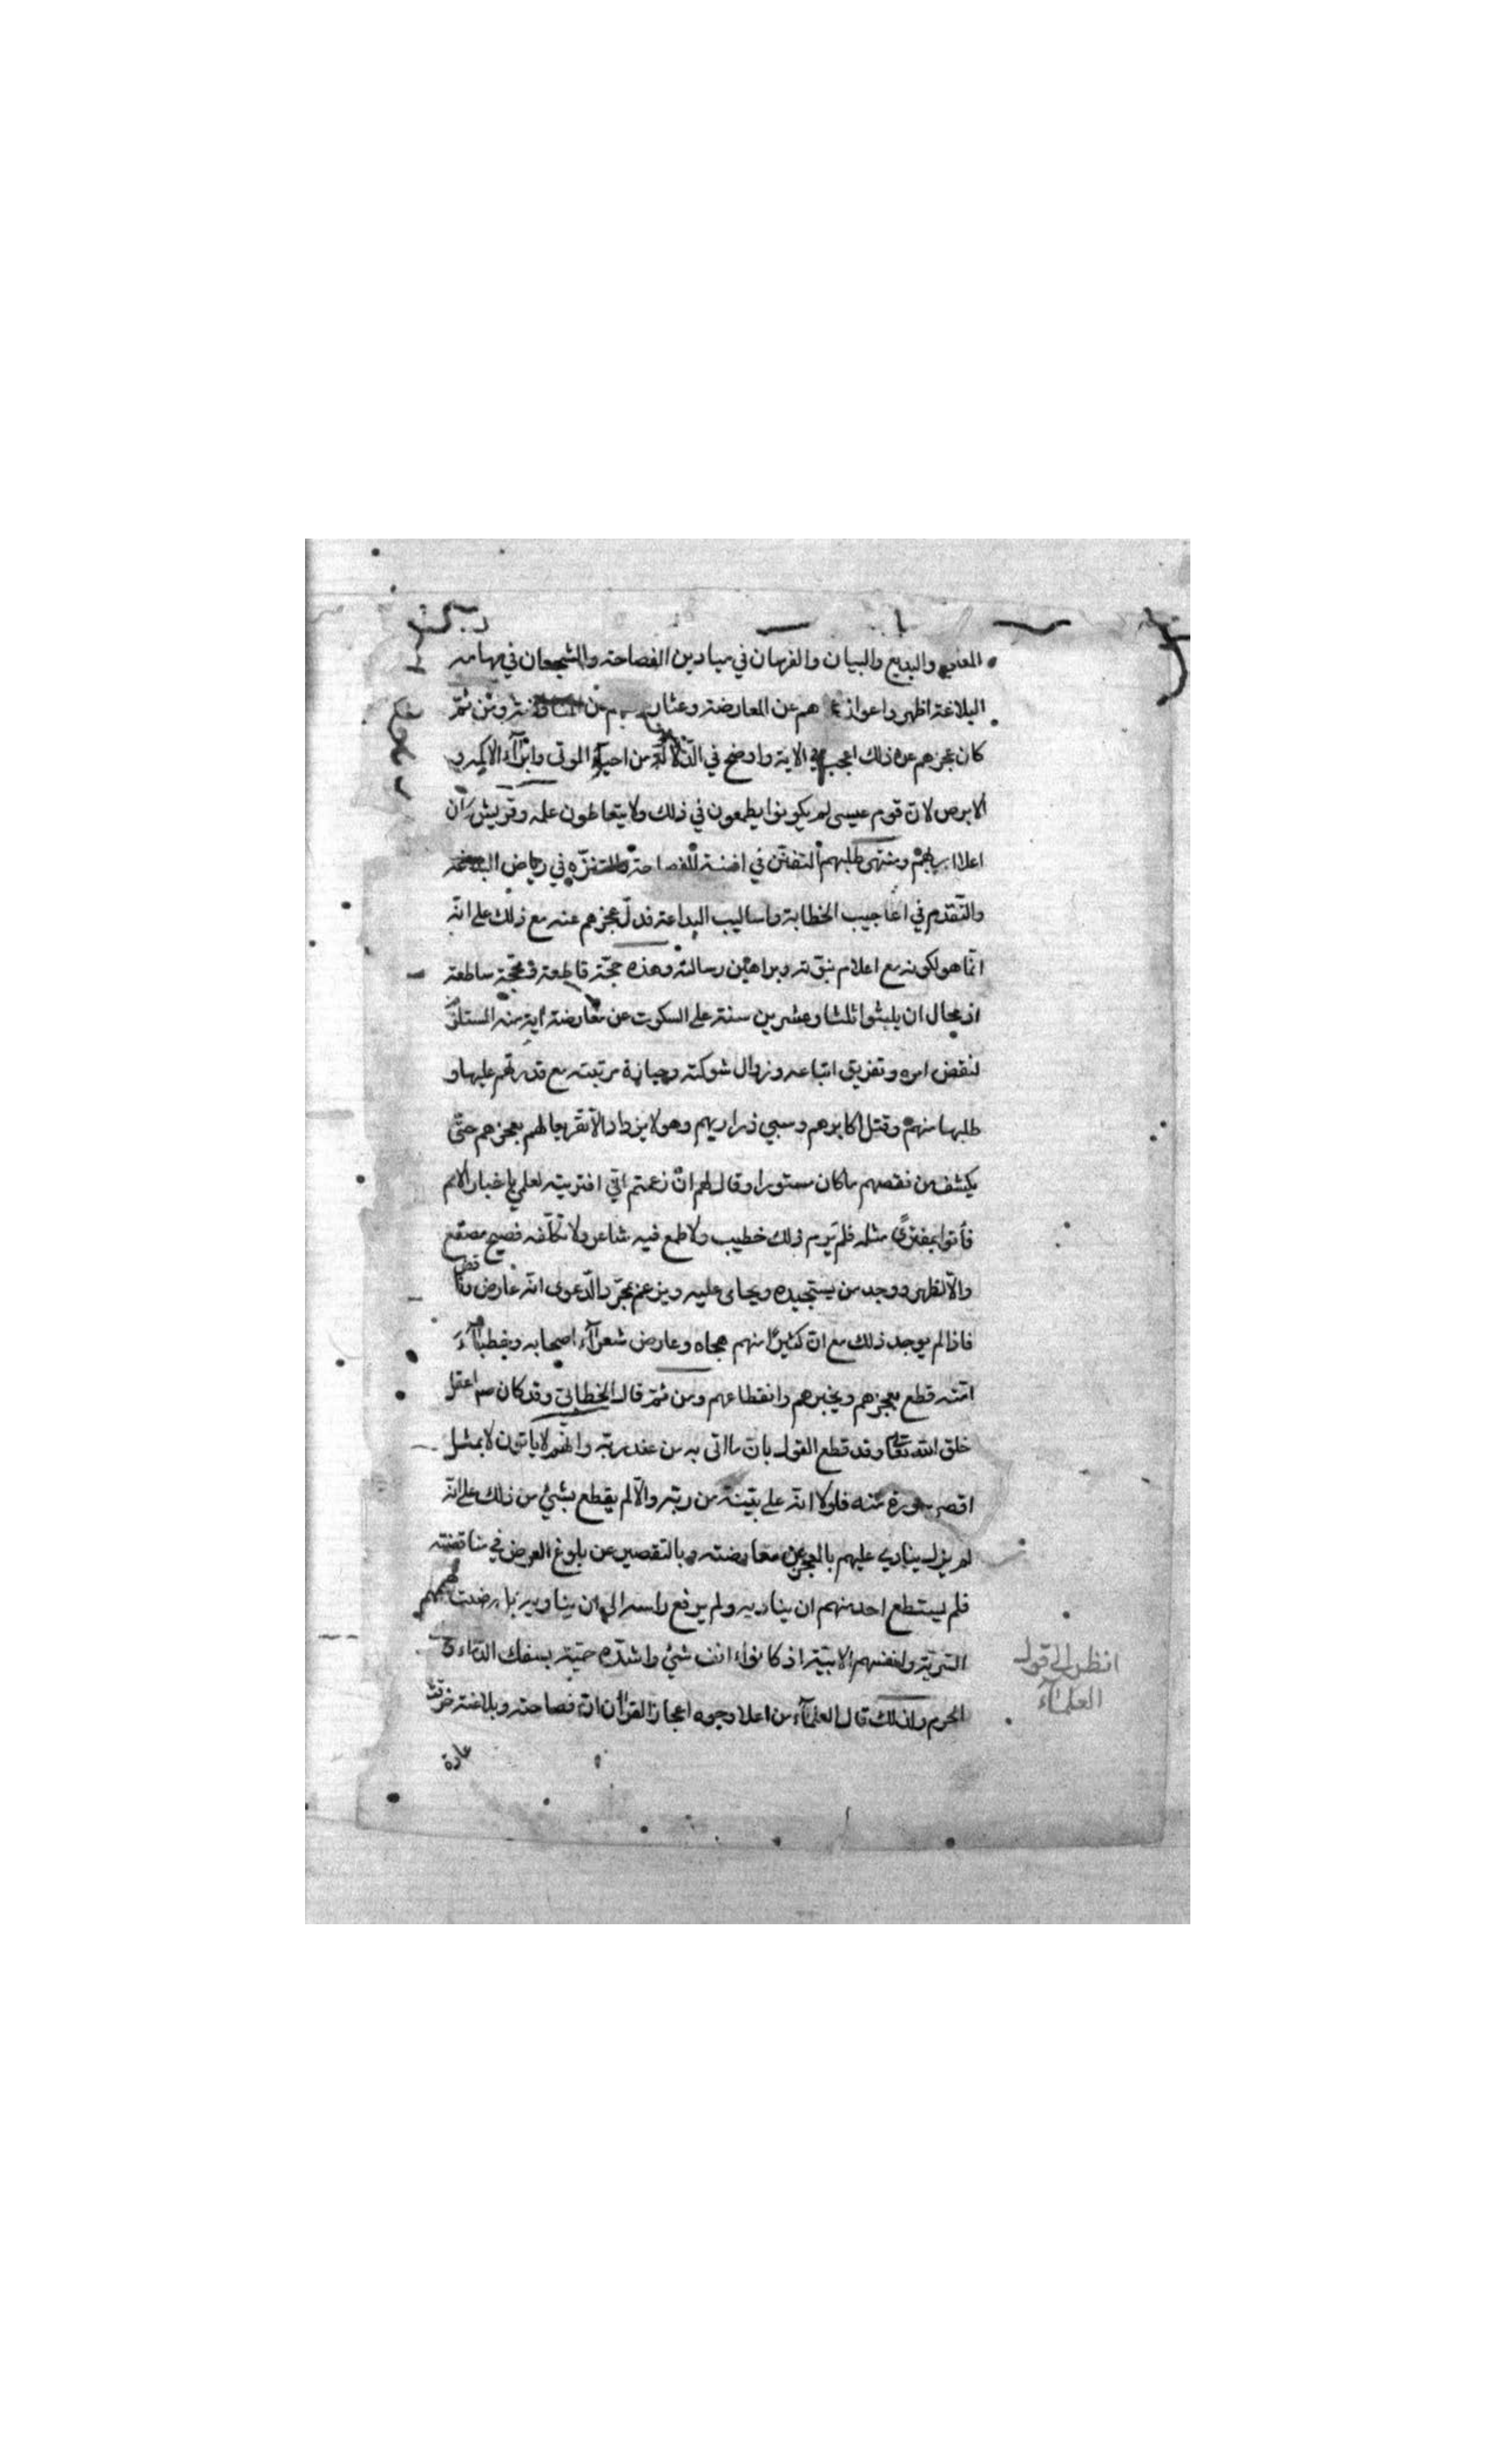 المعاني والبديع والبيان والفرسان في ميادين الفصاحة والشجعان في مهامه
البلاغة اظهر واعواز هم عن المعارضة وعثار عن المناقضة ومن ثمّ
كان عجزهم عن ذلك اعجب في الاية واوضح في الدّلالة من احياء الموتى وابرآء الاكمه و
الابرص لانّ قوم عيسى لم يكونوا يطمعون في ذلك ولا يتعاطون علمه وقريش كان
اعلا ومنتهى طلبهم التفنّن في افنية الفصاحة والتنزّه في رياض البلاغة
والتّقدم في اعاجيب الخطابة واساليب البداعة فدلّ عجزهم عنه مع ذلك على انّه
انّما هو لكونه مع اعلام نبوّته وبراهين رسالته وهذه حجّة قاطعة ومحجّة ساطعة
اذ محال ان يلبثوا ثلثا وعشرين سنة على السكوت عن معارضة اية منه المستلزم
لنقض امره وتفريق اتباعه وزوال شوكته وحيازة مرتبته مع قدرتهم عليها و
طلبها منهم وقتل اكابرهم وسبي ذراريهم وهو لا يزداد الّا تقريعا لهم بعجزهم حتّى
يكشف من نقصهم ما كان مستورا وقال لهم ان زعمتم انّي افتريته لعلمي باخبار الامم
فأتوا بمفترىً مثله فلم يرم ذلك خطيب ولا طمع فيه شاعر ولا تكلّفه فصيح مصقع
والّا لظهر ووجد من يستجيده ويحامى عليه ويزعم بمجرّد الدّعوى انّه عارض وناقض
فاذا لم يوجد ذلك مع انّ كثيرًا منهم هجاه وعارض شعرآء اصحابه وخطبآء
امّته قطع بعجزهم وتحيرهم وانقطاعهم ومن ثمّ قال الخطابي وقد كان صم اعقل
خلق الله تعا وقد قطع القول بانّ ما اتى به من عند ربّه وانّهم لا ياتون لا بمثل
اقصر سورة منه فلولا انّه على بيّنة من ربّه والّا لم يقطع بشئ من ذلك على انّه
لم يزل ينادي عليهم بالعجز عن معارضته وبالتقصير عن بلوغ الغرض في مناقضته
فلم يستطع احد منهم ان يناديه ولم يرفع راسه الى ان يناويه بل رضت هممهم
السّريّة وانفسهم الابيّة اذ كانوا انف شئ واشدّه حميّة بسفك الدّماء
الحرم ولذلك قال العلمآء من اعلا وجوه اعجاز القرآن انّ فصاحته وبلاغته خرقت
عادة
انظر الى قول
العلمآء